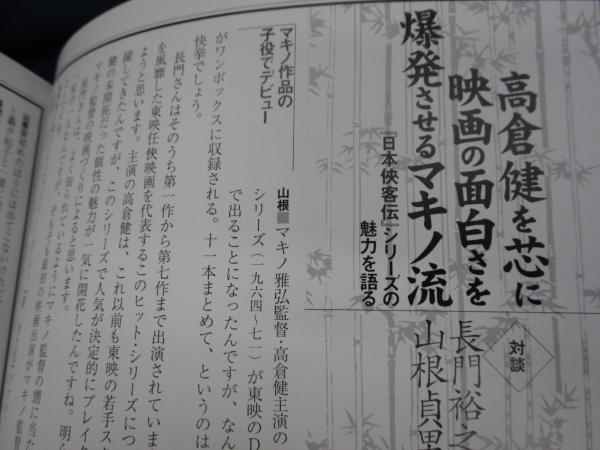 高倉健を芯に
映画の面白さを
爆発させるマキノ流
『日本侠客伝』シリーズの
魅力を語る
対談
長門裕之
山根貞男
マキノ作品の
子役でデビュー
山根■マキノ雅弘監督・高倉健主演の
シリーズ（一九六四〜七一）が東映のD
で出ることになったんですが、なん
がワンボックスに収録される。十一本まとめて、というのは
快挙でしょう。
長門さんはそのうち第一作から第七作まで出演されていま
を風靡した東映任侠映画を代表するこのヒット・シリーズにつ
ようと思います。主演の高倉健は、これ以前も東映の若手ス
躍してきたんですが、このシリーズで人気が決定的にブレイク
健の未開拓だった個性の魅力が一気に開花したんですね。明ら
マキノ監督の映画づくりによると思います。
長門さんは、よく知られているようにマキノ監督の甥に当た
そもそも最初の映画出演がマキノ監督